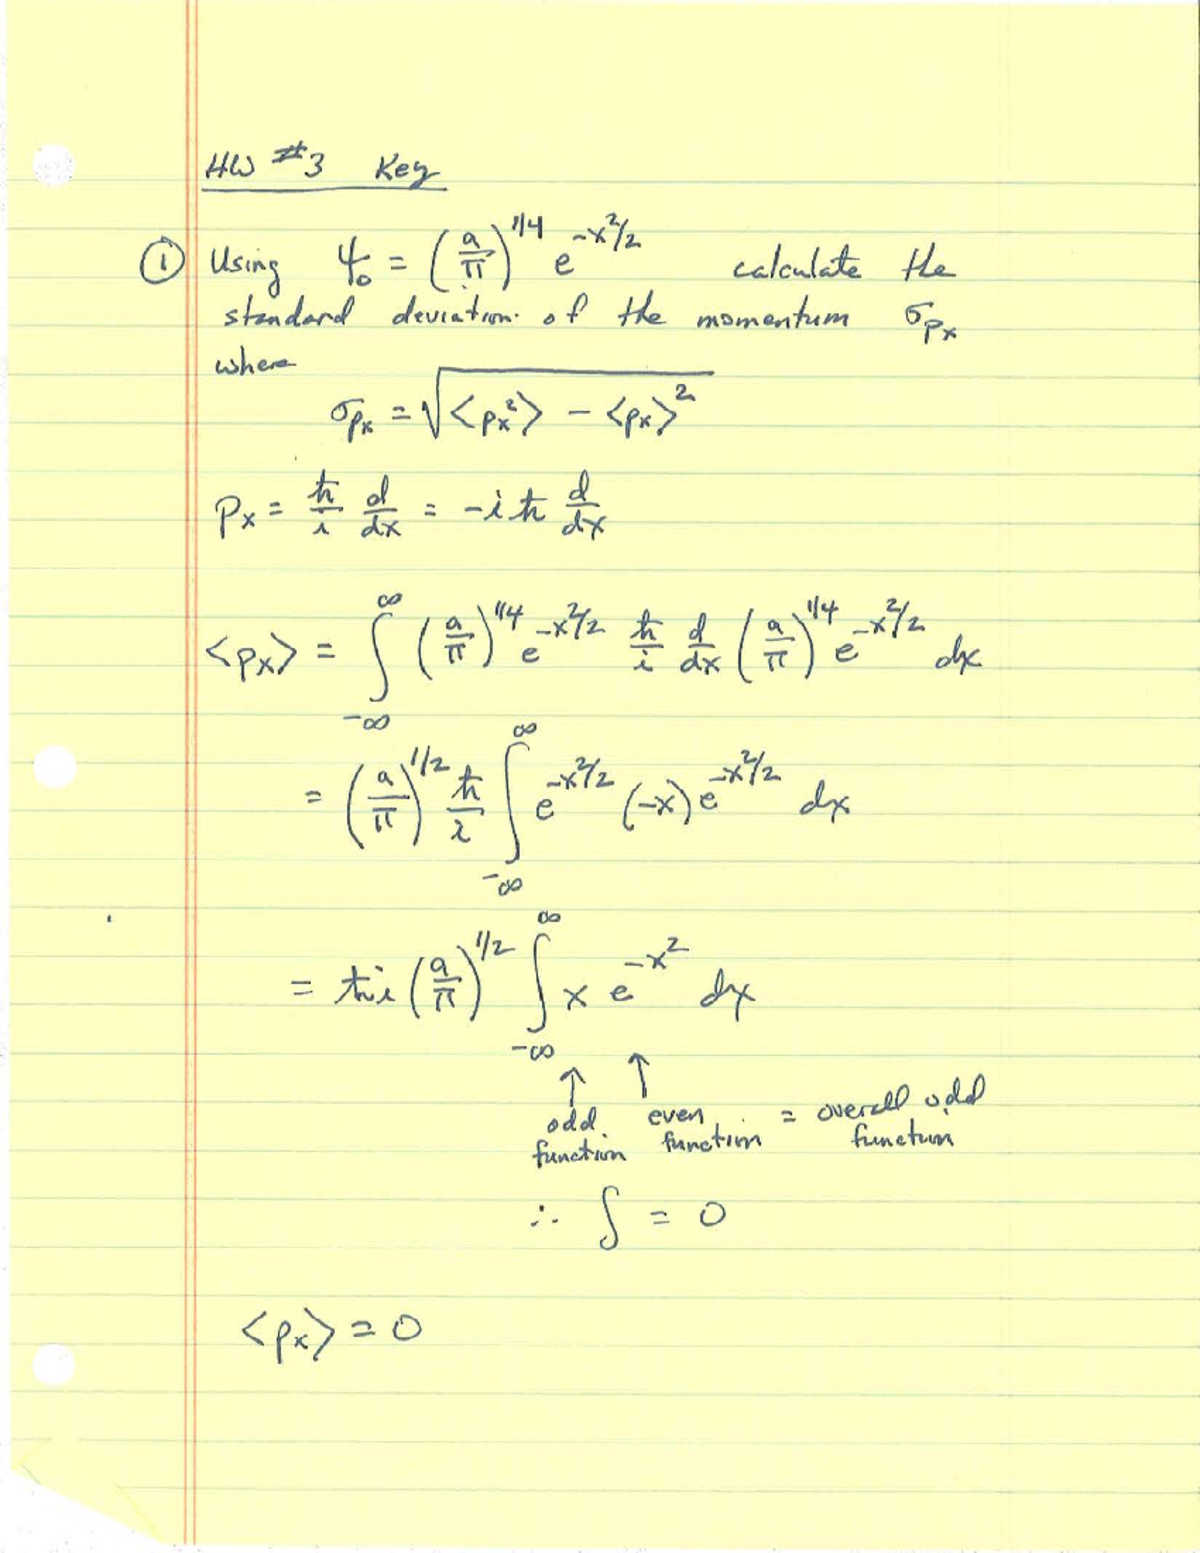 HW #3 Key
① Using ψ₀ = (a/π)^1/4 e^-x²/2 calculate the
standard deviation of the momentum σpx
where
σpx = √(<px²> - <px>²)
Px = ħ/i d/dx = -iħ d/dx
<px> = ∫_-∞^∞ (a/π)^1/4 e^-x²/2 ħ/i d/dx (a/π)^1/4 e^-x²/2 dx
= (a/π)^1/2 ħ/i ∫_-∞^∞ e^-x²/2 (-x) e^-x²/2 dx
= ħi (a/π)^1/2 ∫_-∞^∞ x e^-x² dx
↑ ↑
odd function even function = overall odd function
∴ ∫ = 0
<px> = 0